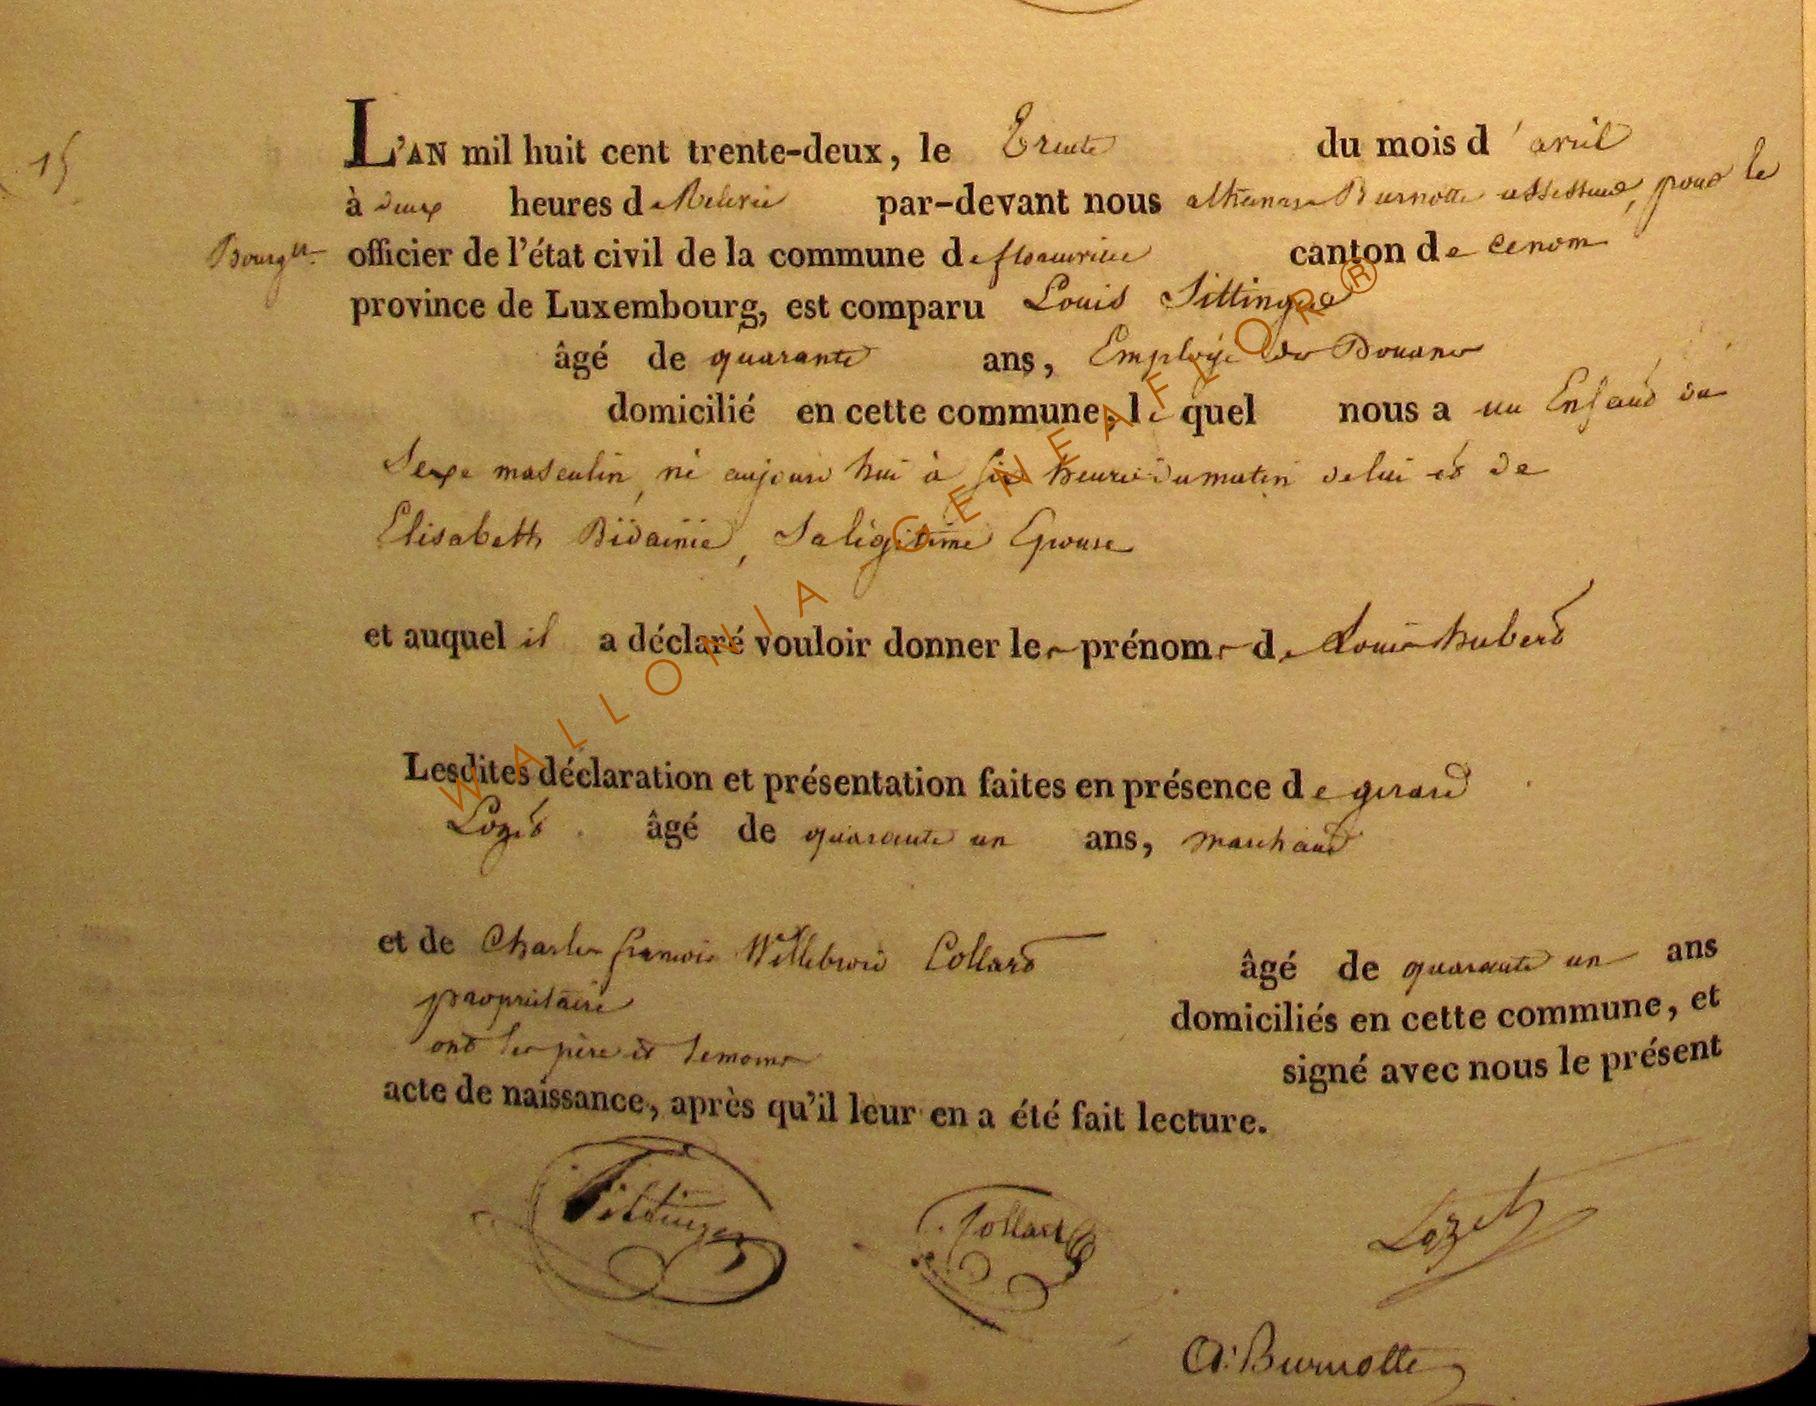 15
L'AN mil huit cent trente-deux, le Trente du mois d'avril
à deux heures de Relevée par-devant nous athanase Burnotte assesseur, pour le
Bourgtre officier de l'état civil de la commune de florenville canton de
province de Luxembourg, est comparu Louis Tittinger
âgé de quarante ans, Employé des Douanes
domicilié en cette commune, lequel nous a un Enfant du
Sexe masculin, né aujourd hui à six heures du matin de lui et de
Elisabeth Bidainie, Sa légitime Epouse
et auquel il a déclaré vouloir donner les prénoms de Louis hubert
Lesdites déclaration et présentation faites en présence de gerard
Lozet âgé de quarante un ans, marchand
et de Charles françois Willebrord Collard âgé de quarante un ans
propriétaire domiciliés en cette commune, et
ont les père et temoins signé avec nous le présent
acte de naissance, après qu'il leur en a été fait lecture.
Tittinger Collard Lozet
A. Burnotte
WALLONIA GENEAFLOR ®